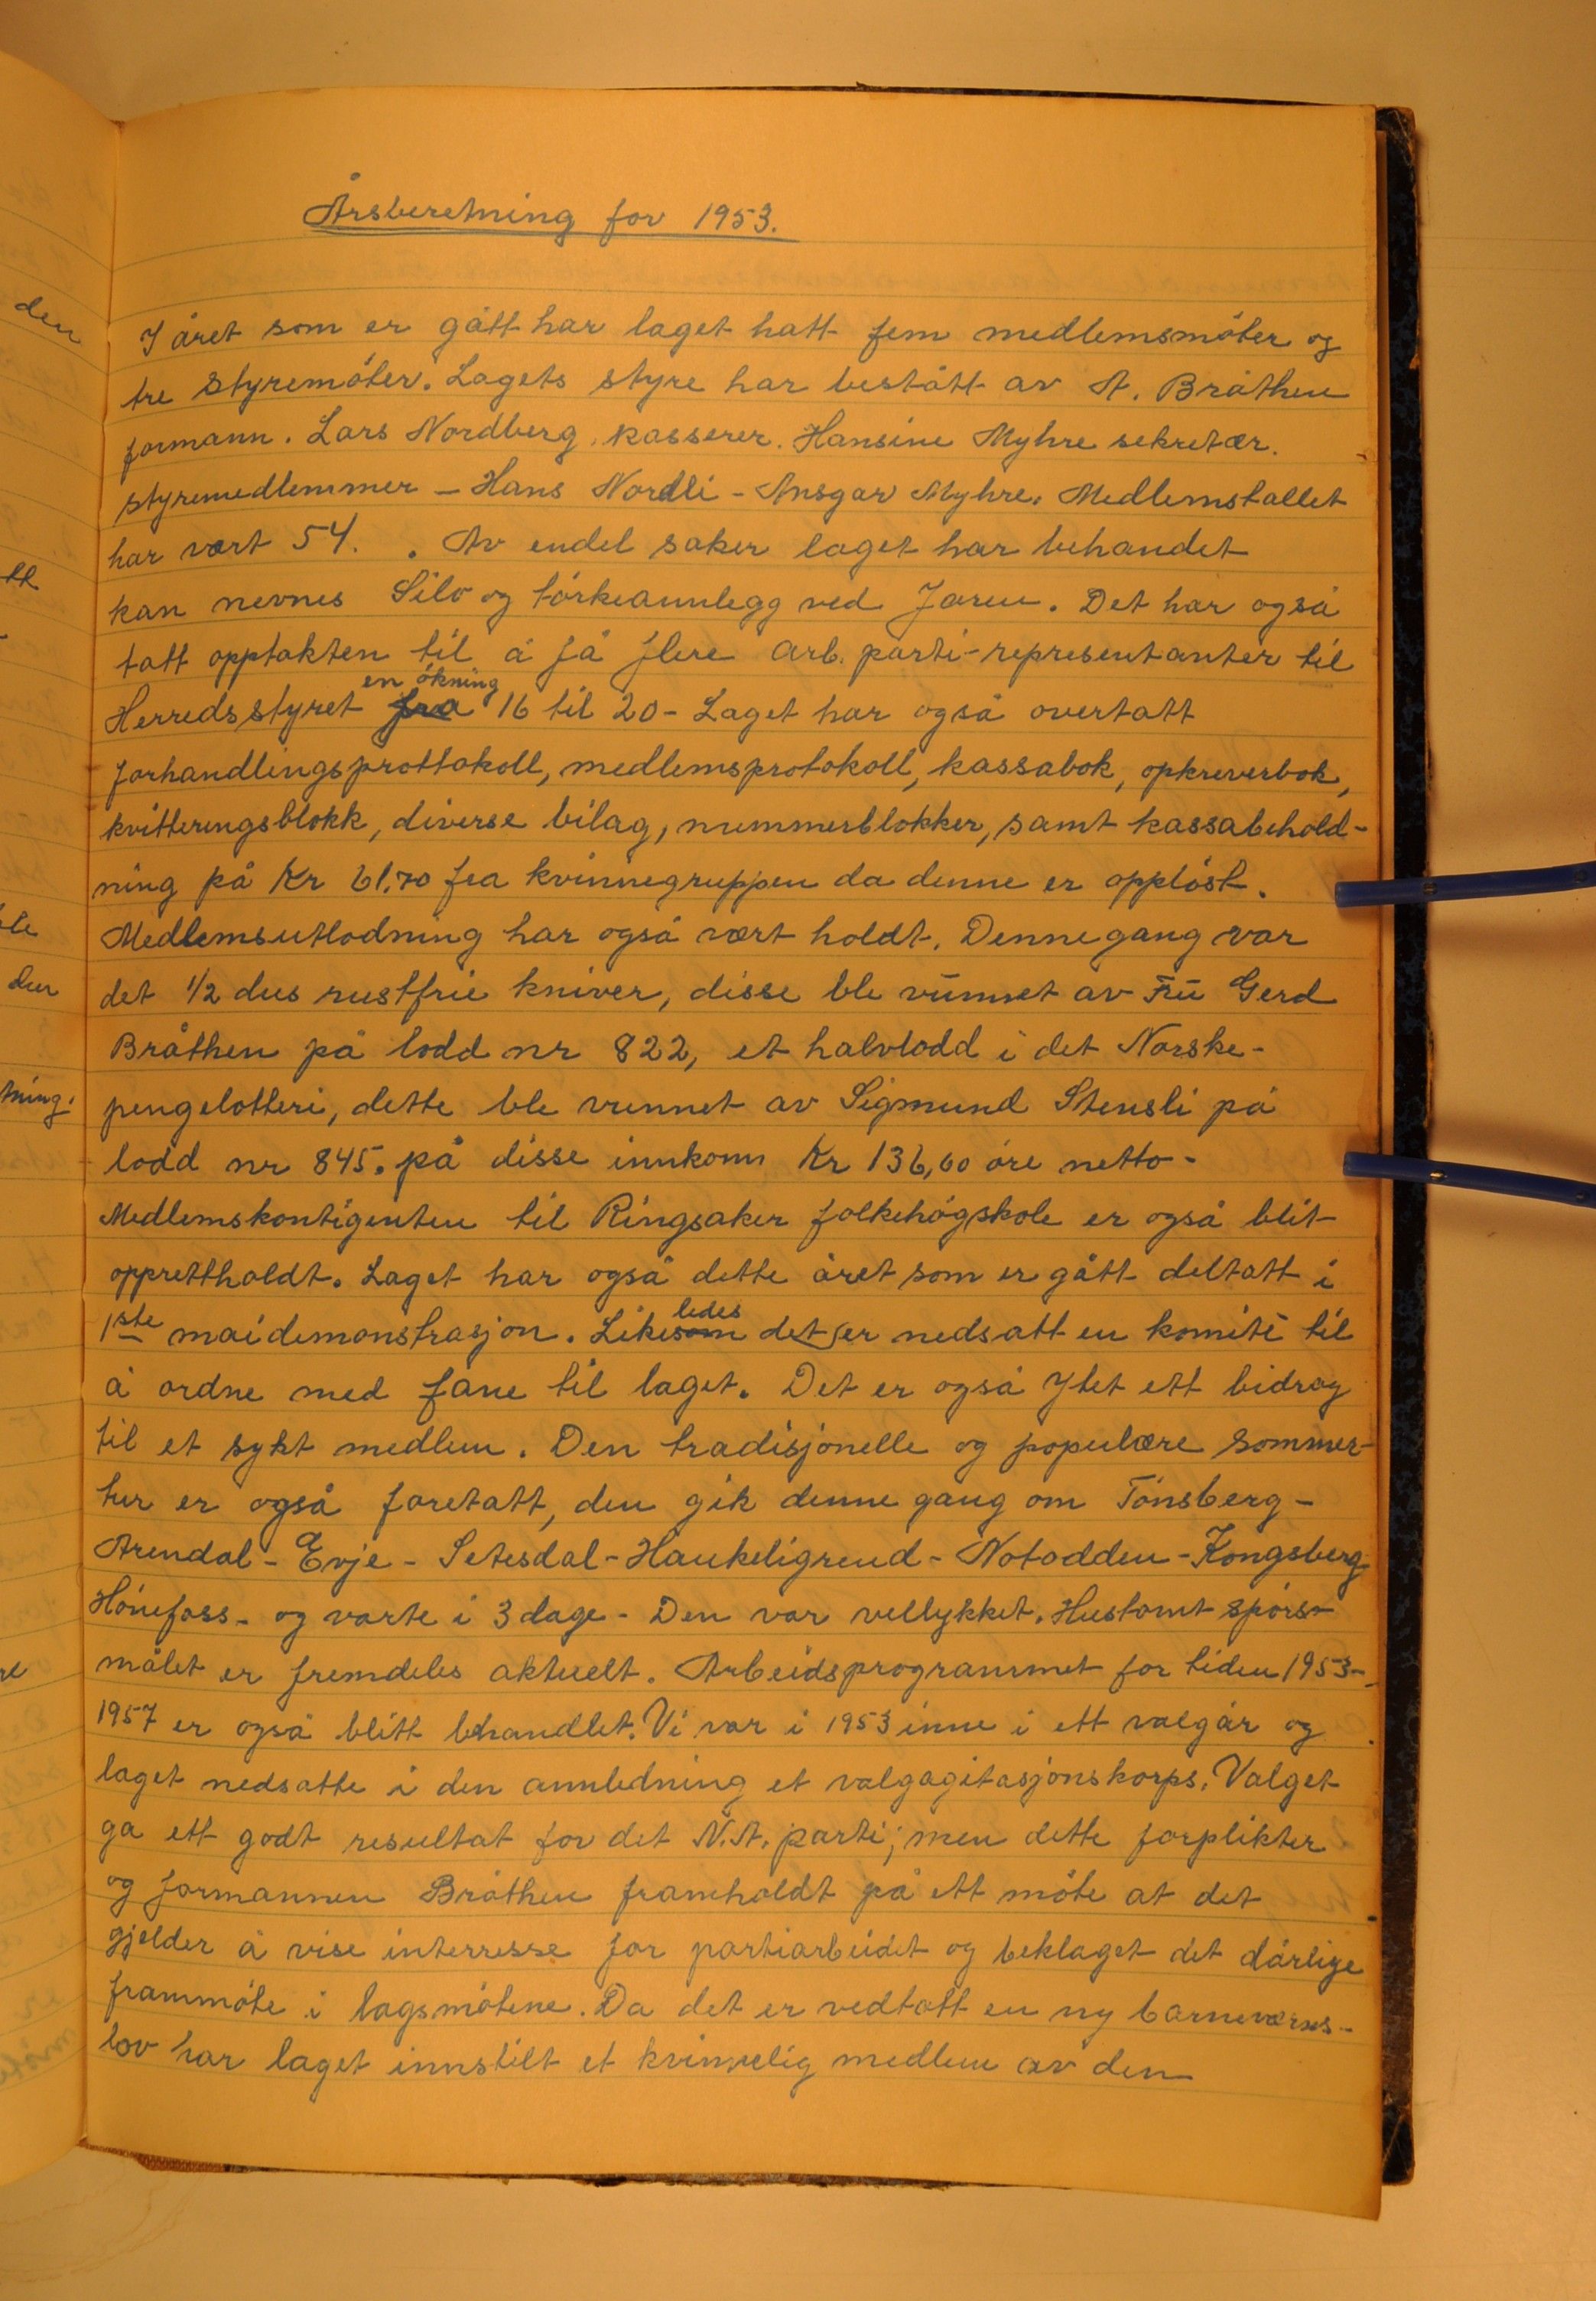 Årsberetning for 1953.
I året som er gått har laget hatt fem medlemsmöter og
tre styremöter. Lagets styre har bestått av A. Bråthen
formann. Lars Nordberg, kasserer. Hansine Myhre sekretær.
styremedlemmer - Hans Nordli - Ansgar Myhre. Medlemstallet
har vært 54. . Av endel saker laget har behandet
kan nevnes Silo og törkeannlegg ved Jaren. Det har også
tatt opptakten til å få flere arb. parti-representanter til
en ökning
Herredsstyret fra 16 til 20 - Laget har også overtatt
forhandlingsprottokoll, medlemsprotokoll, kassabok, opkreverbok,
kvitteringsblokk, diverse bilag, nummerblokker, samt kassabehold-
ning på Kr 61,70 fra kvinnegruppen da denne er opplöst.
Medlemsutlodning har også vært holdt. Dennegang var
det 1/2 dus rustfrie kniver, disse ble vunnet av Fru Gerd
Bråthen på lodd nr 822, et halvlodd i det Norske-
pengelotteri, dette ble vunnet av Sigmund Stensli på
lodd nr 845. på disse innkom Kr 136,60 öre netto -
Medlemskontigenten til Ringsaker folkehögskole er også blit
opprettholdt. Laget har også dette året som er gått deltatt i
ledes
1ste maidemonstrasjon. Likesom det er nedsatt en komité til
å ordne med fane til laget. Det er også ytet ett bidrag
til et sykt medlem. Den tradisjonelle og populære sommer-
tur er også foretatt, den gik denne gang om Tönsberg -
Arendal - Evje - Setesdal - Haukeligrend - Notodden - Kongsberg
Hönefoss - og varte i 3 dage - Den var vellykket. Hustomt spörs-
målet er fremdeles aktuelt. Arbeidsprogrammet for tiden 1953-
1957 er også blitt behandlet. Vi var i 1953 inne i ett valgår og
laget nedsatte i den annledning et valgagitasjonskorps. Valget
ga ett godt resultat for det N.A. parti; men dette forplikter
og formannen Bråthen framholdt på ett möte at det
gjelder å vise interresse for partiarbeidet og beklaget det dårlige
frammöte i lagsmötene. Da det er vedtatt en ny barneværns-
lov har laget innstilt et kvinnelig medlem av den